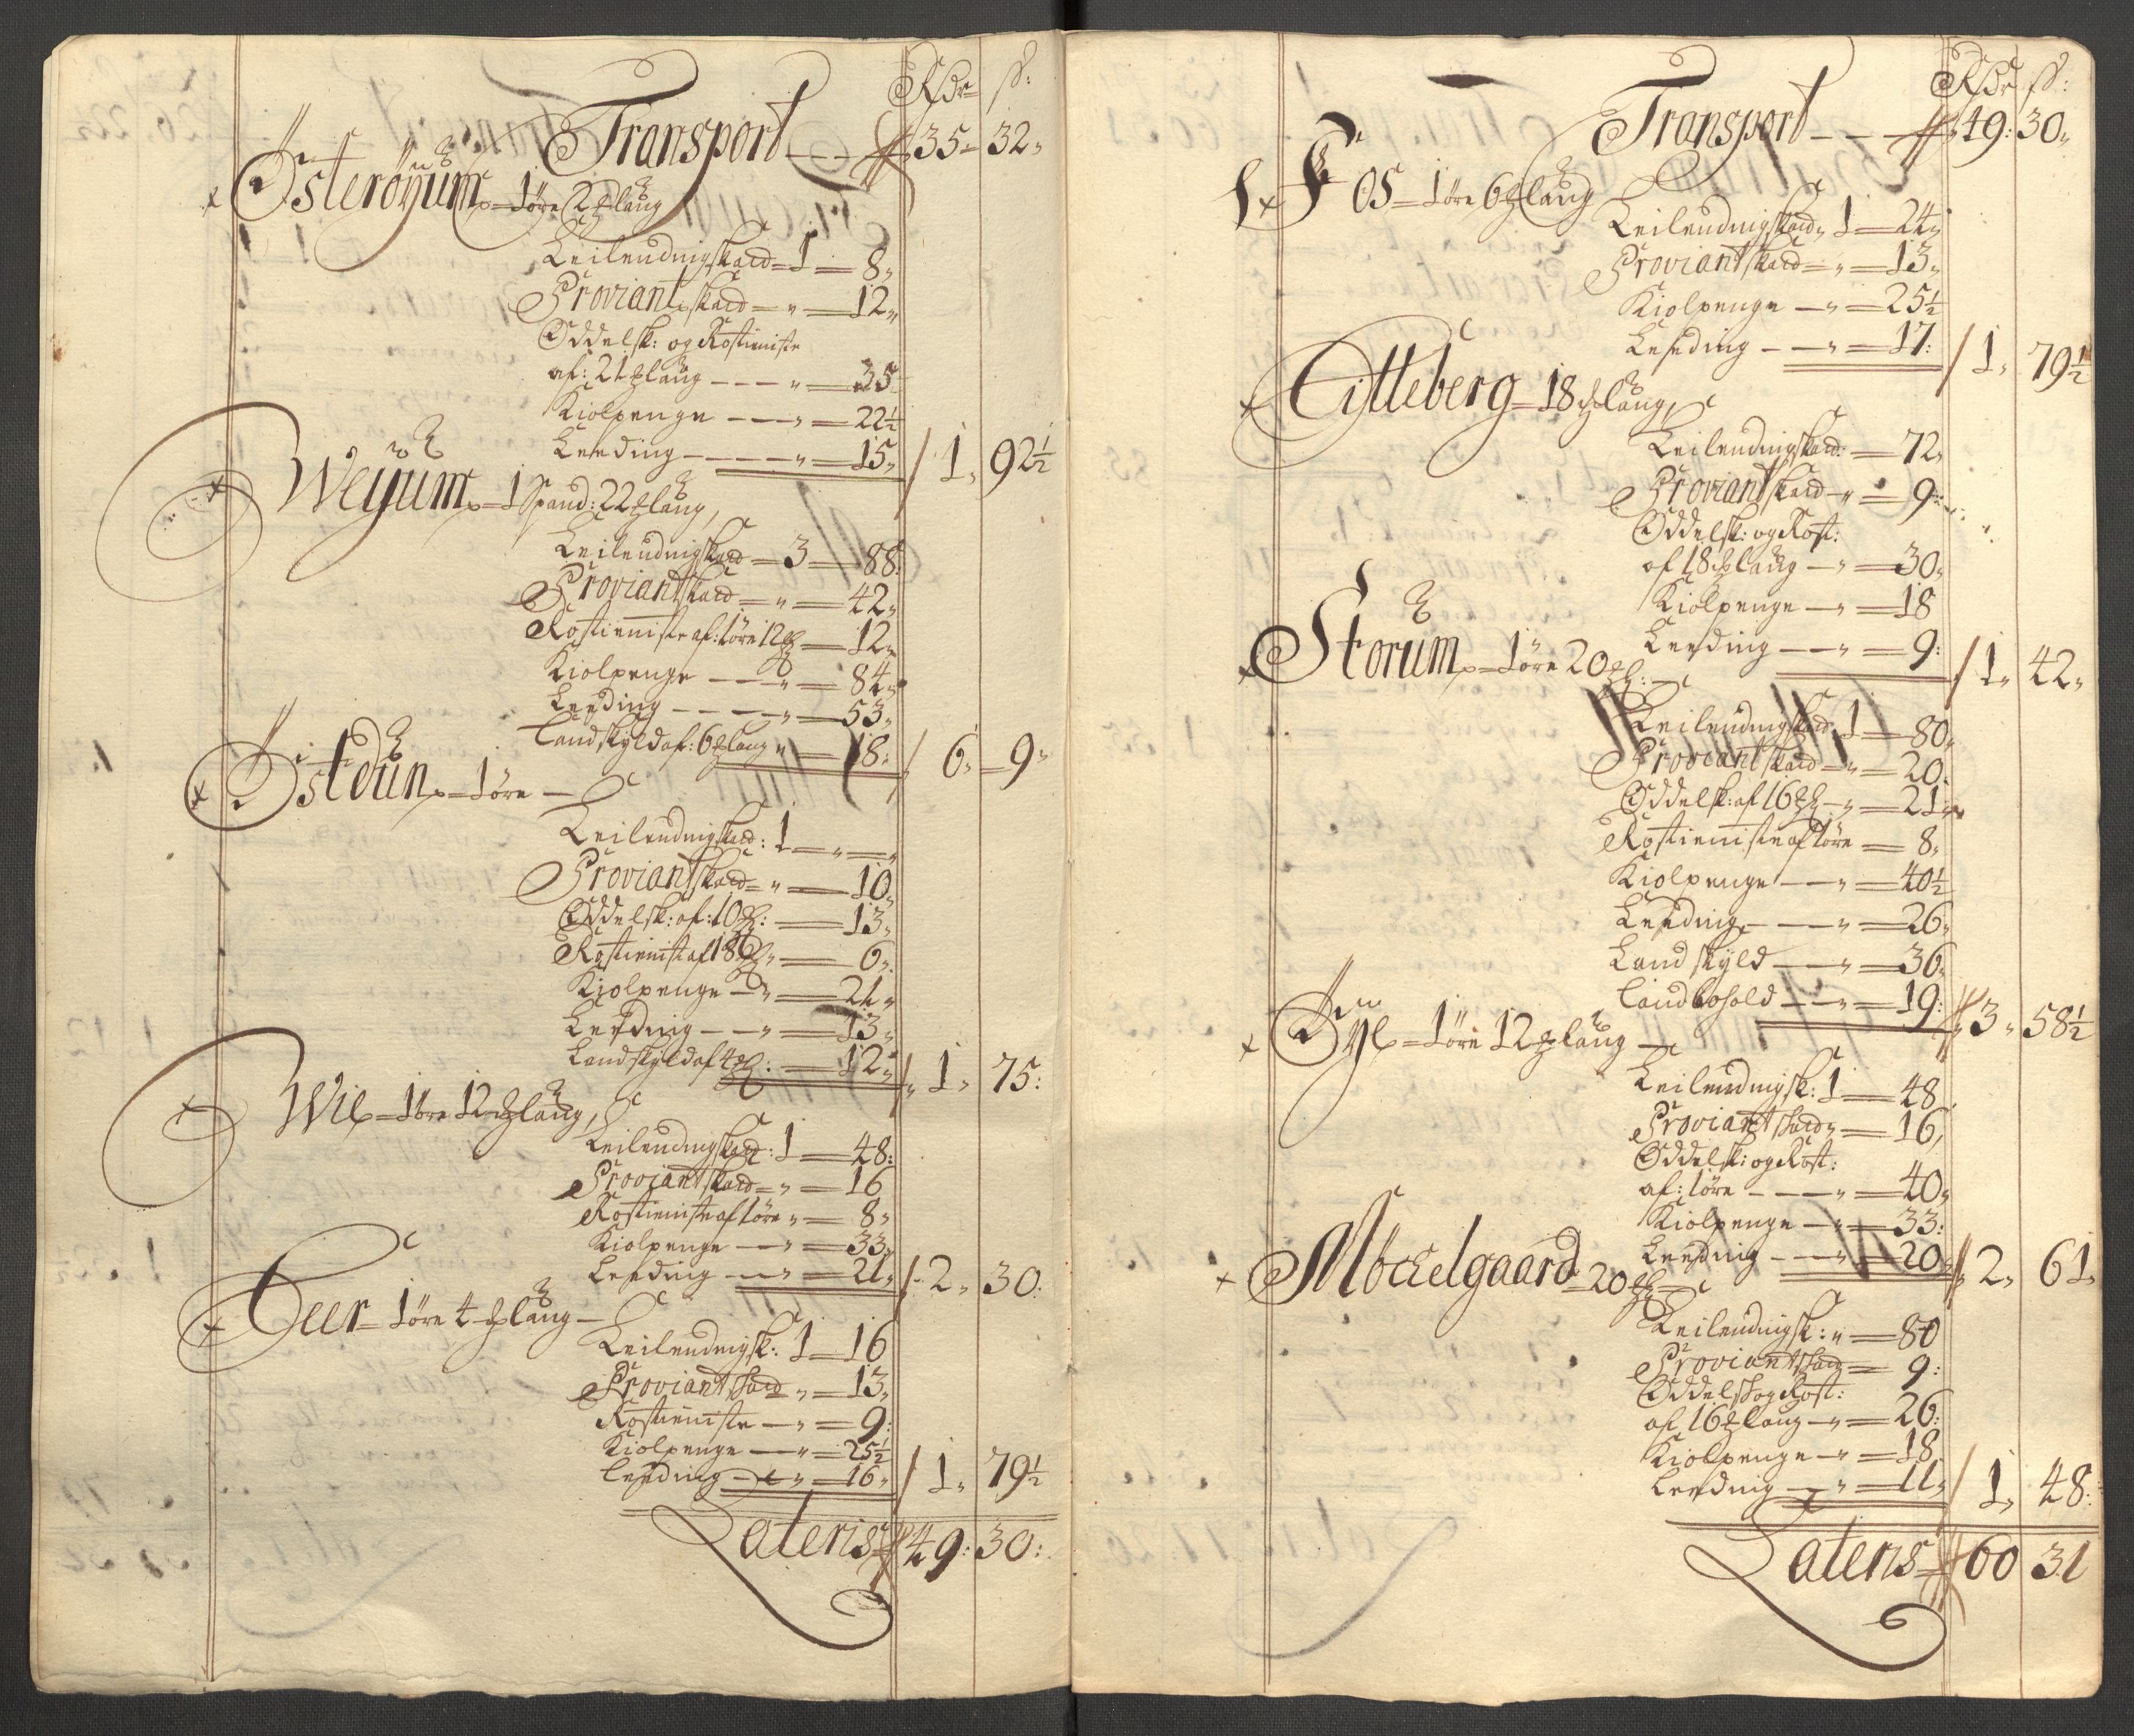 Rdr ß:
Transport — 35 — 32„
Österöÿüm — 1 öre 2 ꝑlaug
Leilendingskatt — 1 — 8„
Proviantskatt — „ — 12„
Oddelsk: og Rostieniste
af: 21 ꝑlaug — „ — 35
Kiolpenge — „ — 22½
Leeding — „ — 15„ / 1„ 92½
Weÿüm — 1 Spand: 22 ꝑlaug,
Leilendingskatt — 3 — 88:
Proviantskatt — „ — 42„
Rostieniste af: 1 öre 12 ꝑ — 12„
Kiolpenge — „ — 84„
Leeding — „ — 53„
Landskÿld af: 6 ꝑlaug „ — 18„ / 6„ — 9„
Östdün — 1 öre —
Leilendingskatt: 1 — „ — „
Proviantskatt — „ — 10„
Oddelsk: af: 10 ꝑ: — 13„
Rostienist af 18 ꝑ „ — 6„
Kiolpenge — „ — 21„
Leeding — „ — 13„
Landskÿld af 4 ꝑ: — 12„ / 1„ 75:
Wie — 1 öre 12 ꝑlaug,
Leilendingskatt: 1 — 48:
Proviantskatt — „ — 16
Rostieniste af 1 öre „ — 8„
Kiolpenge — „ — 33„
Leeding — „ — 21„ / 2„ 30:
Teer — 1 öre 4 ꝑlaug —
Leilendingsk: 1 — 16
Proviantskatt „ — 13„
Rostieniste — „ — 9:
Kiolpenge — „ — 25½
Leeding — „ — 16„ / 1„ 79½
Lateris 49: 30:
Rdr ß:
Transport — 49: 30„
Fos — 1 öre 6 ꝑlaug
Leilendingskatt„ 1 — 24„
Proviantskatt — „ — 13„
Kiolpenge — „ — 25½
Leeding — „ — 17: / 1„ 79½
Citteberg — 18 ꝑlaug,
Leilendingskatt: — 72„
Proviantskatt — „ — 9„
Oddelsk: og Rost:
af 18 ꝑlaug — „ — 30„
Kiolpenge — „ — 18
Leeding — „ — 9: / 1„ 42„
Storüm — 1 öre 20 ꝑ: —
Leilendingskatt: 1 — 80„
Proviantskatt — „ — 20:
Oddelsk: af 16 ꝑ — „ — 21„
Rostieniste af 1 öre — 8„
Kiolpenge — „ — 40½
Leeding — „ — 26„
Landskÿld — „ — 36„
Landbohold — „ — 19: 3„ 58½
Tÿe — 1 öre 12 ꝑlaug —
Leilendingsk: 1 — 48
Proviantskatt„ — 16,
Oddelsk: og Rost:
af: 1 öre — „ — 40„
Kiolpenge — „ — 33:
Leeding — „ — 20„ 2„ 61„
Möckelgaard — 20 ꝑ —
Leilendingsk: „ — 80
Proviantskatt — 9:
Oddelsk og Rost:
af 16 ꝑlaug — „ — 26:
Kiolpenge — „ — 18
Leeding — „ — 11„ / 1„ 48:
Lateris 60 31